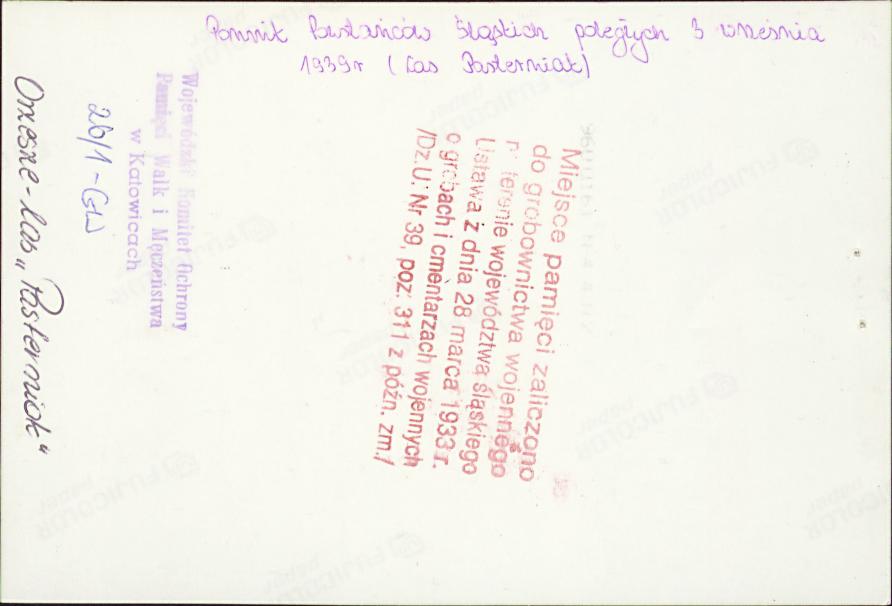 Pomnik Powstańców Śląskich poległych 3 września
1939r (Las Pasterniak)
Miejsce pamięci zaliczono
do grobownictwa wojennego
na terenie województwa śląskiego
Ustawa z dnia 28 marca 1933 r.
o grobach i cmentarzach wojennych
/Dz.U. Nr 39, poz. 311 z późn. zm./
Wojewódzki Komitet Ochrony
Pamięci Walk i Męczeństwa
w Katowicach
26/1-GW
Orzesze-las „Pasterniok"
FUJICOLOR
paper